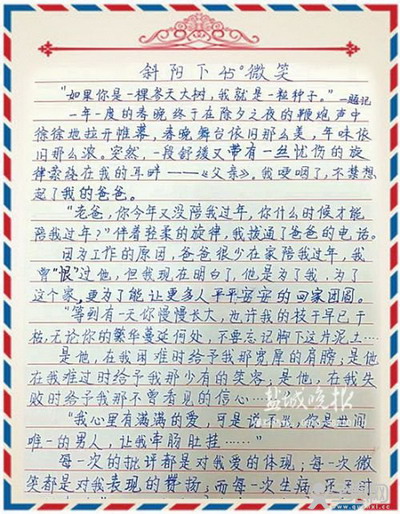 斜阳下45°微笑
“如果你是一棵参天大树,我就是一粒种子。”—题记
一年一度的春晚终于在除夕之夜的鞭炮声中
徐徐地拉开帷幕,春晚舞台依旧那么美,年味依
旧那么浓。突然,一段舒缓又带有一丝忧伤的旋
律萦绕在我的耳畔——《父亲》,我哽咽了,不禁想
起了我的爸爸。
“老爸,你今年又没陪我过年,你什么时候才能
陪我过年?”伴着轻柔的旋律,我拨通了爸爸的电话。
因为工作的原因,爸爸很少在家陪我过年,我
曾“恨”过他,但我现在明白了,他是为了我、为了
这个家,更为了能让更多人平平安安的回家团圆。
“等到有一天你慢慢长大,也许我的枝干早已干
枯,无论你的繁华蔓延何处,不要忘记脚下这片泥土……
是他,在我困难时给予我那宽厚的肩膀;是他
在我难过时给予我那少有的笑容;是他,在我失
败时给予我那不曾看见的信心……
“我心里有满满的爱,可是说不出,你是世间
唯一的男人,让我牵肠肚挂……”
每一次的批评都是对我爱的体现;每一次微
笑都是对我表现的褒扬;而每一次生病,
盐城晚报